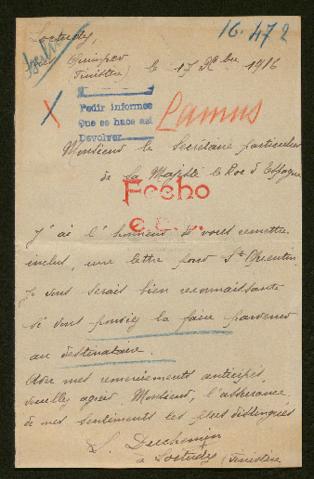 16.472
Loctudy,
Quimper
(Finistère) le 17 Xbre 1916
Pedir informes
Que se hace así
Devolver
Lamus
Monsieur le Secrétaire particulier
de sa Majesté le Roi d'Espagne
Fecho
J'ai l'honneur de vous remettre
inclus, une lettre pour St Quentin
Je vous serais bien reconnaissante
si vous pouviez la faire parvenir
au destinataire.
Avec mes remerciements anticipés,
veuillez agréer, Monsieur, l'assurance
de mes sentiments les plus distingués
Duchemin
à Loctudy (Finistère